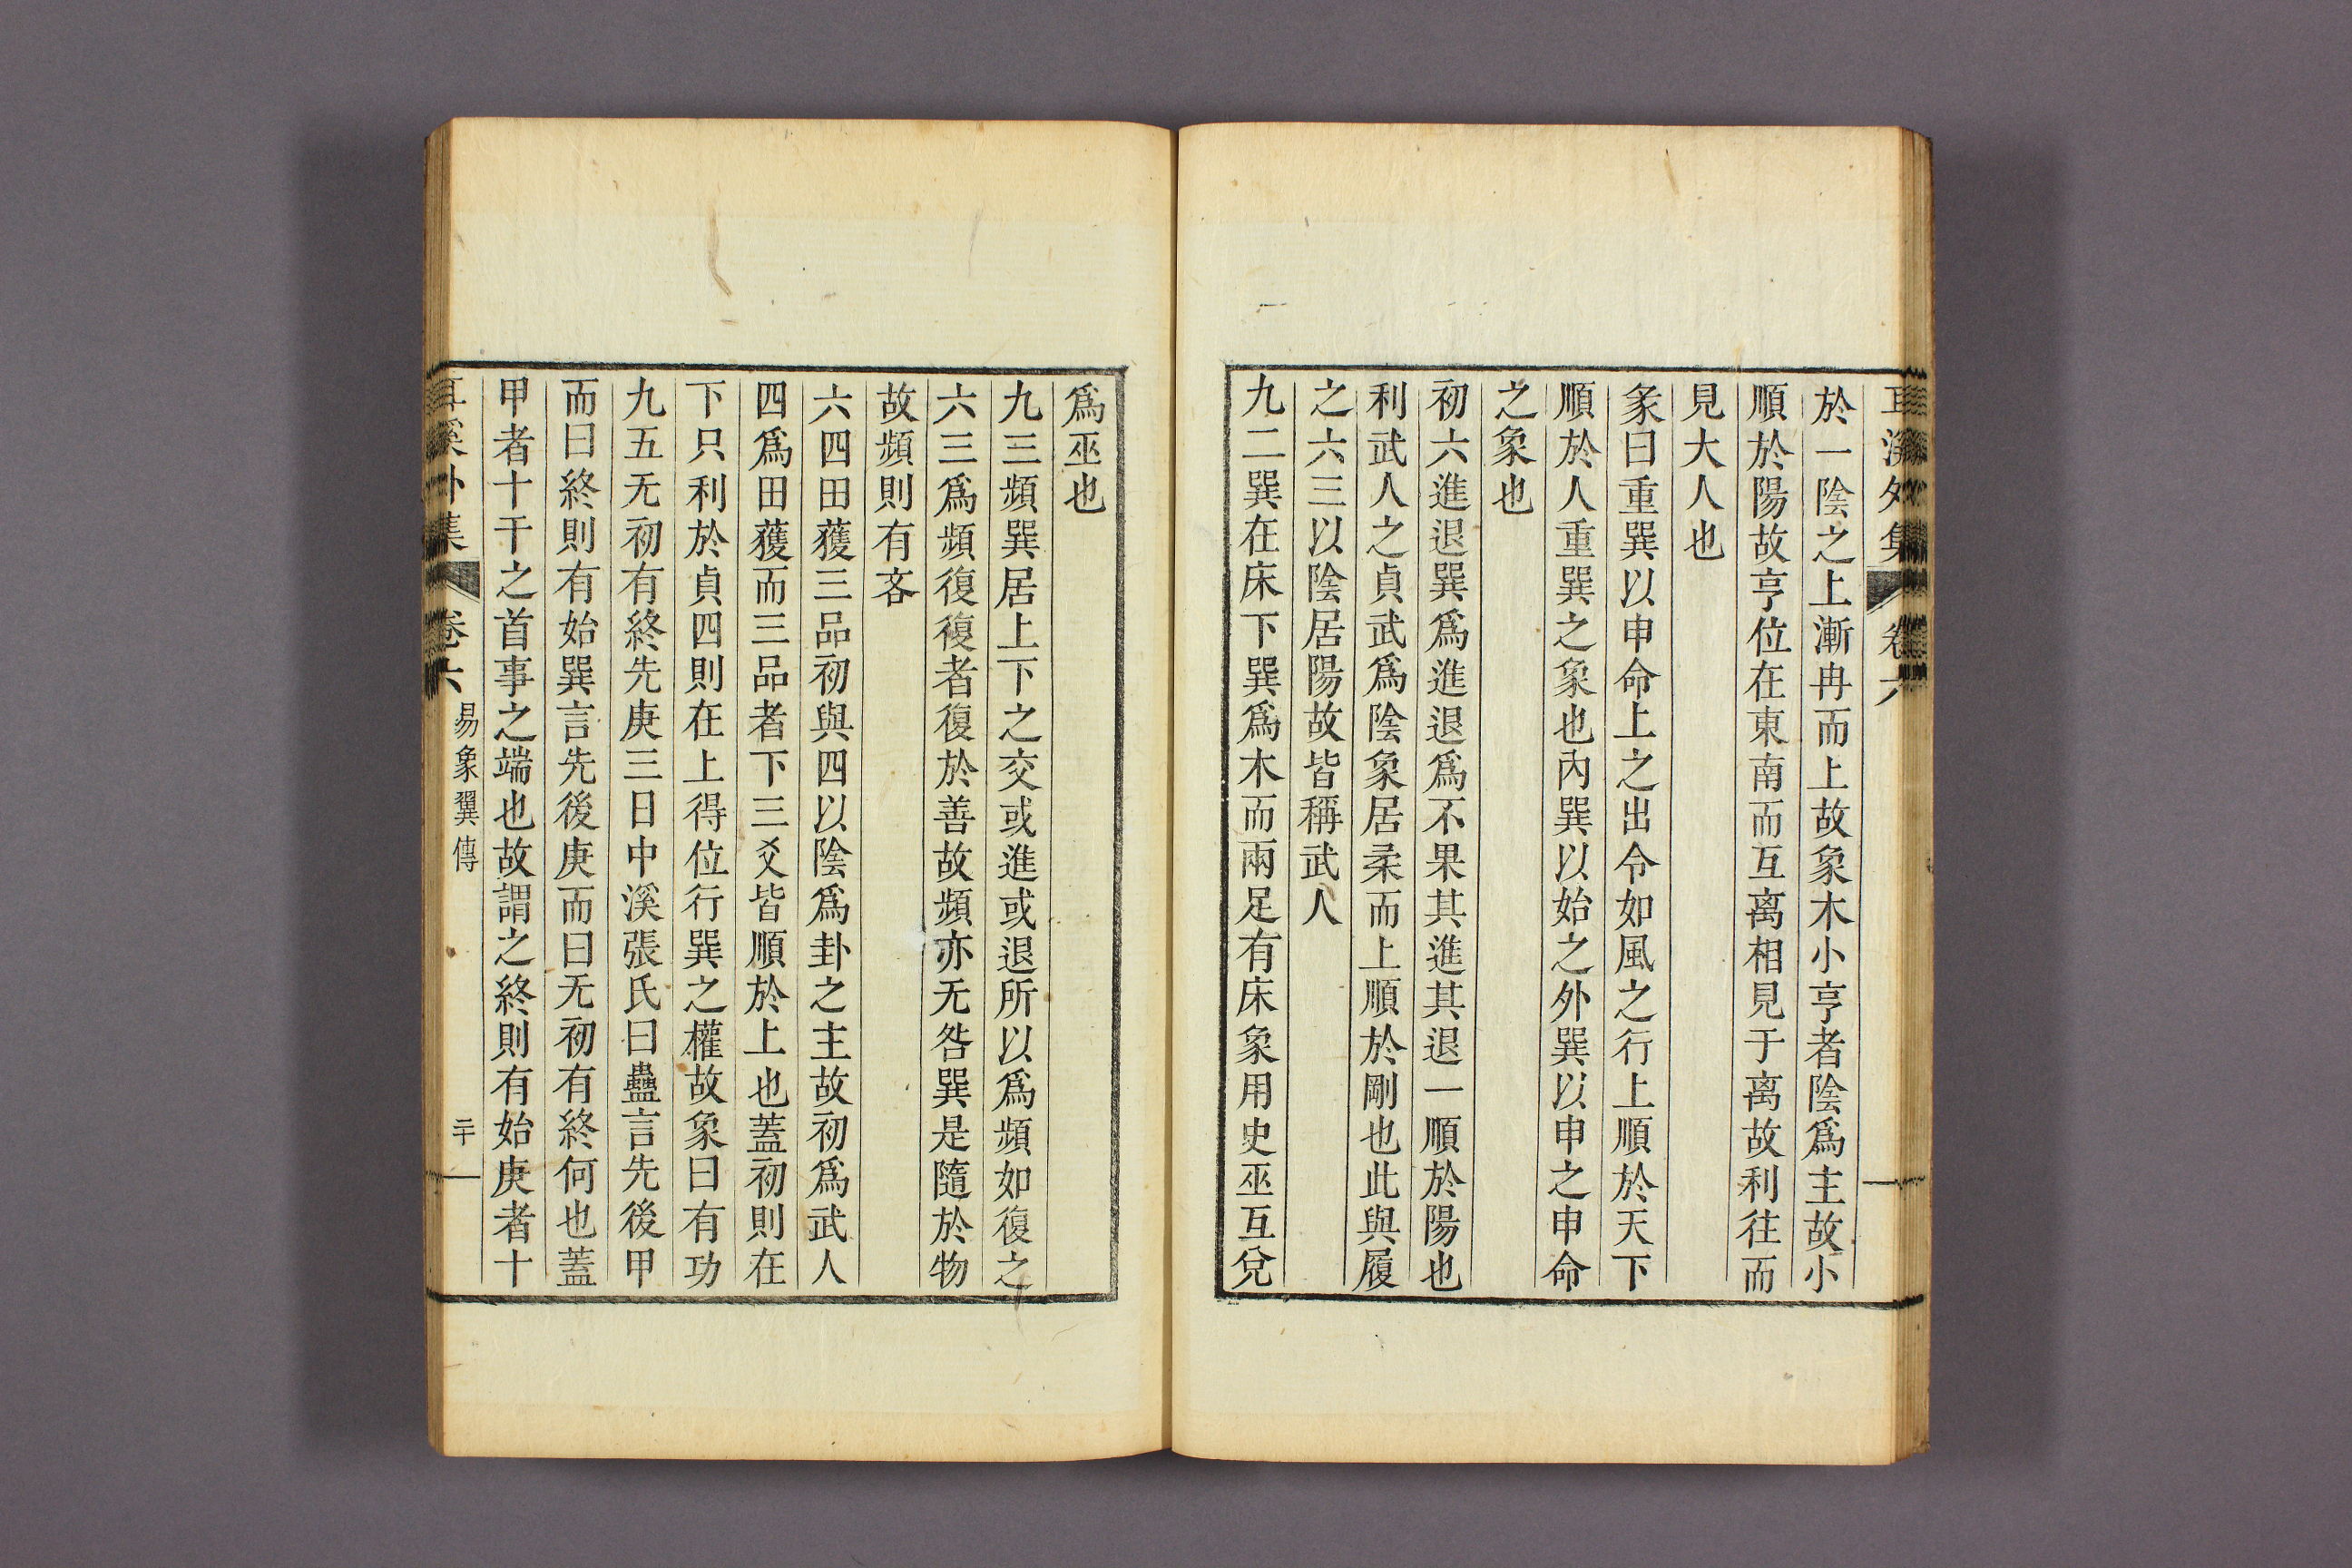 耳溪外集 卷六
於一陰之上漸冉而上故象木小亨者陰爲主故小
順於陽故亨位在東南而互离相見于离故利往而
見大人也
彖曰重巽以申命上之出令如風之行上順於天下
順於人重巽之象也內巽以始之外巽以申之申命
之象也
初六進退巽爲進退爲不果其進其退一順於陽也
利武人之貞武爲陰象居柔而上順於剛也此與履
之六三以陰居陽故皆稱武人
九二巽在床下巽爲木而兩足有床象用史巫互兌
爲巫也
九三頻巽居上下之交或進或退所以爲頻如復之
六三爲頻復複者復於善故頻亦无咎巽是隨於物
故頻則有吝
六四田獲三品初與四以陰爲卦之主故初爲武人
四爲田獲而三品者下三爻皆順於上也蓋初則在
下只利於貞四則在上得位行巽之權故象曰有功
九五无初有終先庚三日中溪張氏曰蠱言先後甲
而曰終則有始巽言先後庚而曰无初有終何也蓋
甲者十干之首事之端也故謂之終則有始庚者十
耳溪外集 卷六 易象翼傳 二十